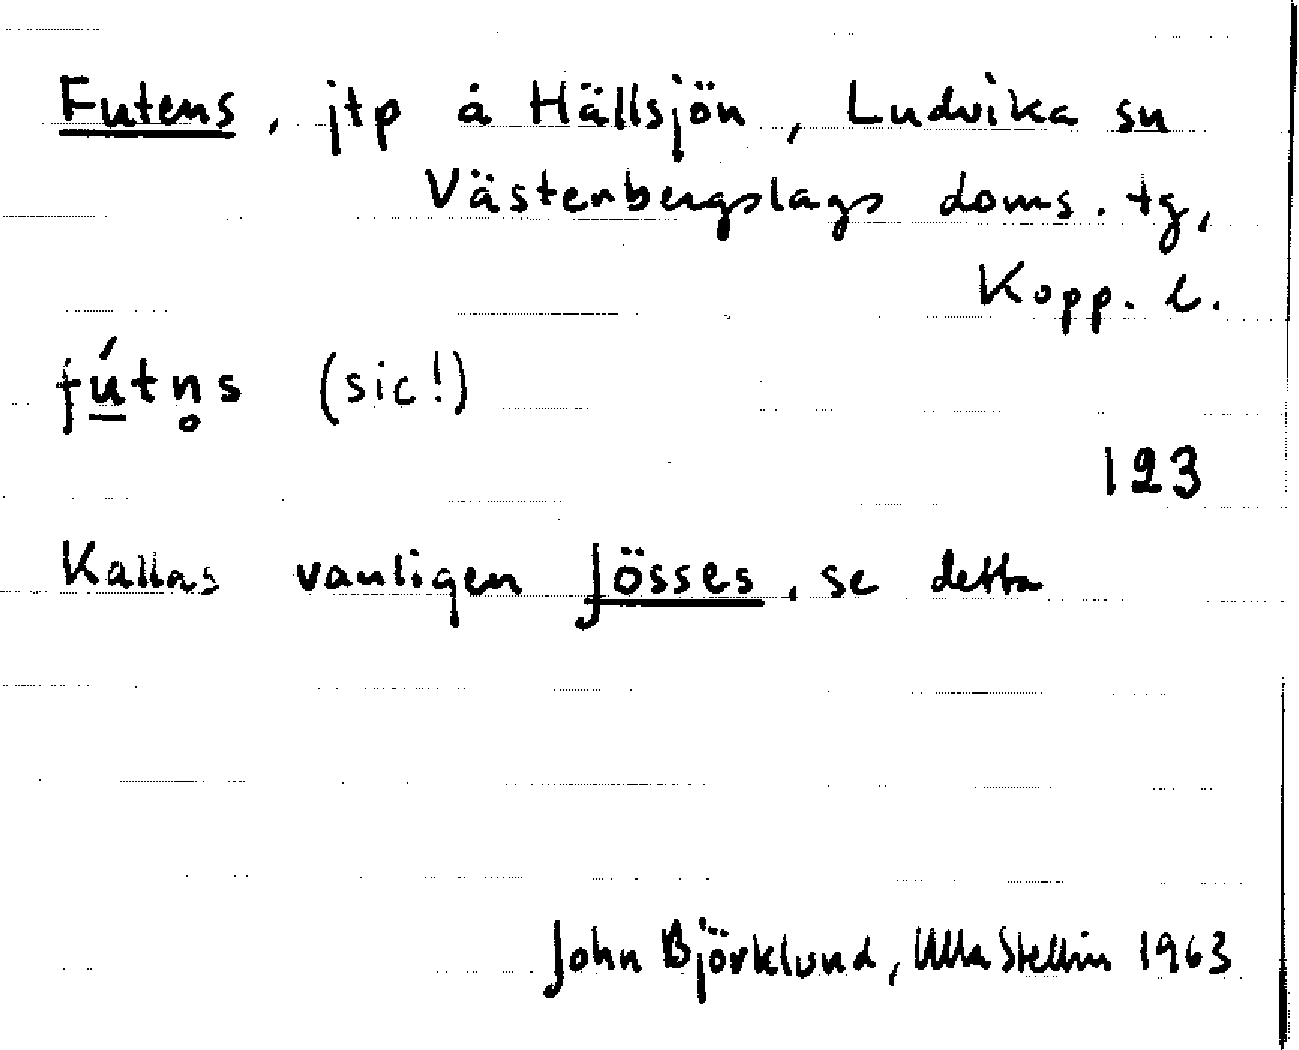 Futens, jtp å Hällsjön, Ludvika sn
Västerbergslags doms. tg,
Kopp. l.
fú̲tn̥s (sic!)
123
Kallas vanligen Jösses, se detta
John Björklund, Ulla Stellin 1963